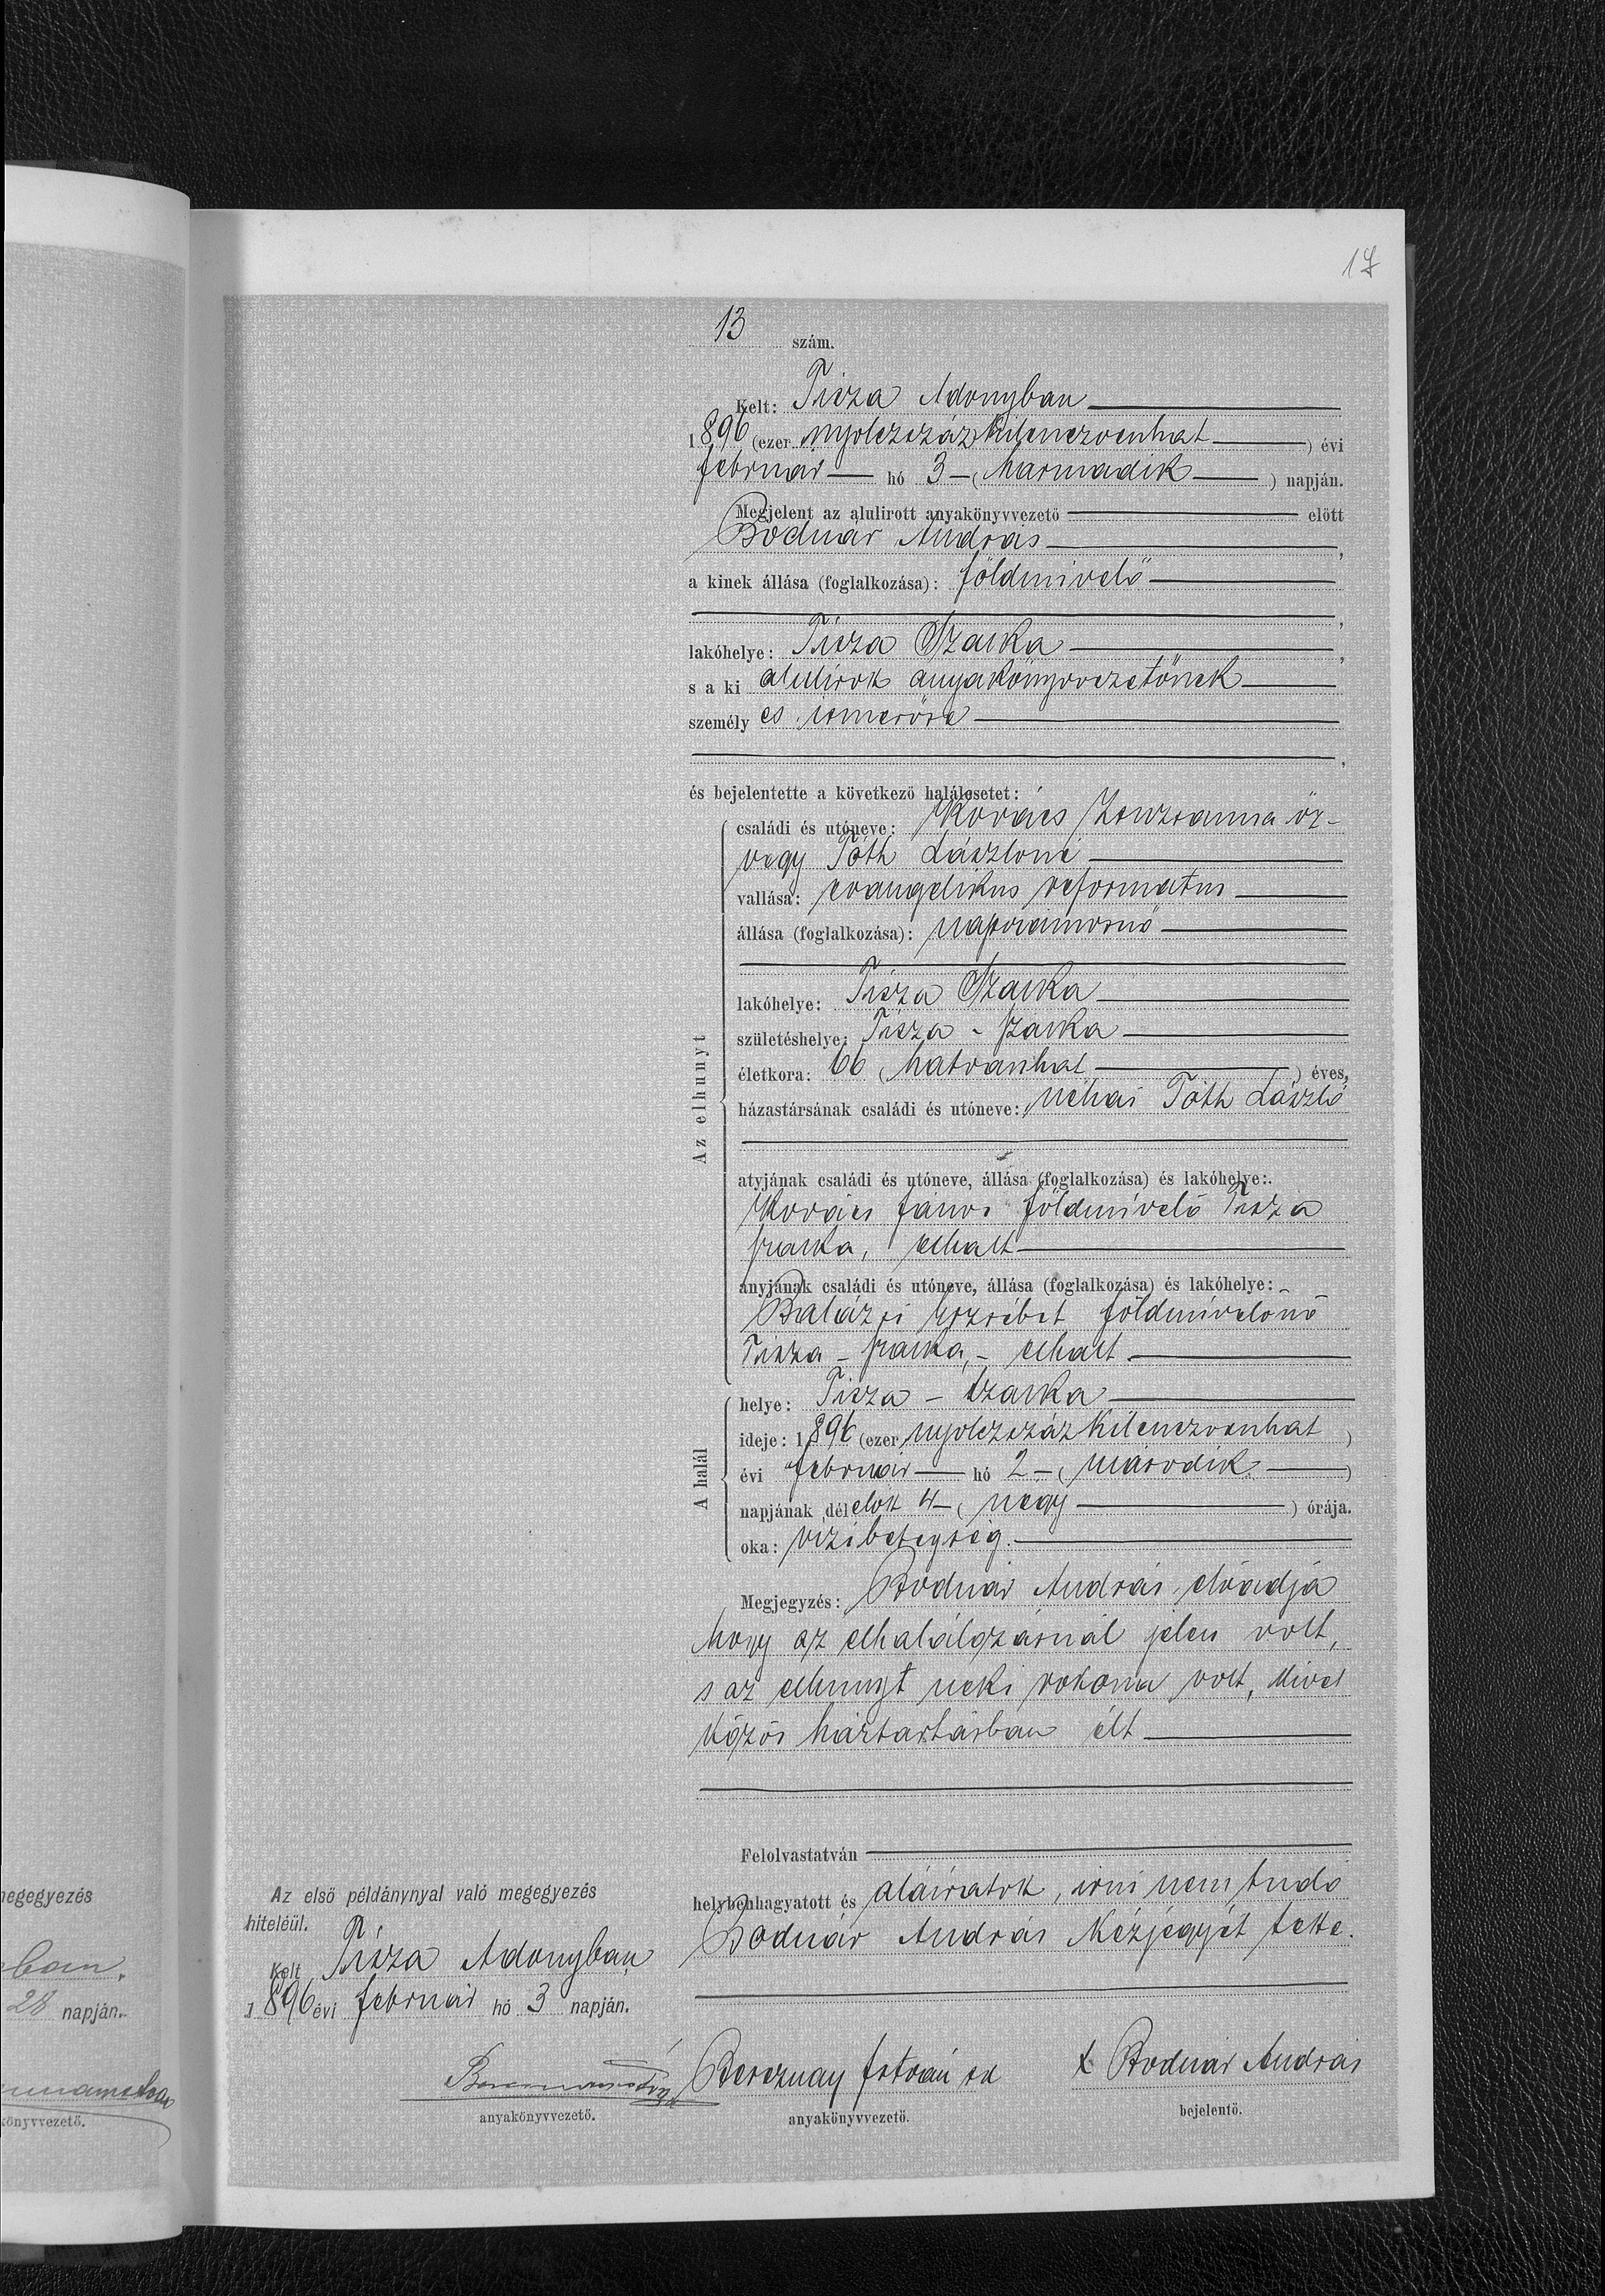 17
13 szám.
Kelt: Tisza Adonyban
1896 (ezer nyolczszázkilenczvenhat) évi
február hó 3 (harmadik) napján.
Megjelent az alulirott anyakönyvvezető előtt
Bodnár András,
a kinek állása (foglalkozása): földmivelő
lakóhelye: Tisza Szalka,
s a ki alulirok anyakönyvvezetőnek
személyes ismerőse
és bejelentette a következő halálesetet:
Az elhunyt
családi és utóneve: Kovács Zsuzsanna öz-
vegy Tóth Lászloné
vallása: evangelikus reformatus
állása (foglalkozása): napszámosnő
lakóhelye: Tisza Szalka
születéshelye: Tisza - szalka
életkora: 66 (hatvanhat) éves,
házastársának családi és utóneve: néhai Tóth László
atyjának családi és utóneve, állása (foglalkozása) és lakóhelye:
Kovács János földmívelő Tisza
szalka, elhalt
anyjának családi és utóneve, állása (foglalkozása) és lakóhelye:
Balázsi Erzsébet földmívelőnő
Tisza - szalka, - elhalt
A halál
helye: Tisza - Szalka
ideje: 1896 (ezer nyolczszázkilenczvenhat)
évi február hó 2 (második)
napjának délelőtt 4 (négy) órája.
oka: vizibetegség.
Megjegyzés: Bodnár András előadja
hogy az elhalálozásnál jelen volt,
s az elhunyt neki rokona volt, kivel
közös háztartásban élt
Felolvastatván
helybenhagyatott és aláiratok, irni nem tudó
Bodnár András kézjegyét tette.
Az első példánynyal való megegyezés
hiteléül.
Kelt Tisza Adonyban
1896 évi február hó 3 napján.
anyakönyvvezető.
Bereznay István sk
anyakönyvvezető.
x Bodnár András
bejelentő.
megegyezés
28 napján.
könyvvezető.